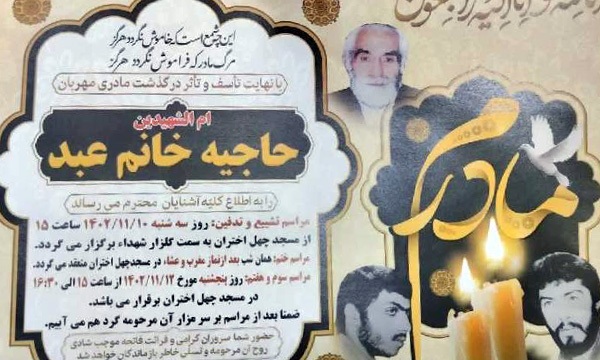 انا لله و انا الیه راجعون
این چه شمع است که خاموش نگردد هرگز
مرگ مادر که فراموش نگردد هرگز
با نهایت تأسف و تأثر درگذشت مادری مهربان
ام الشهیدین
حاجیه خانم عبد
را به اطلاع کلیه آشنایان محترم می رساند
مراسم تشییع و تدفین: روز سه شنبه ۱۴۰۲/۱۱/۱۰ ساعت ۱۵
از مسجد چهل اختران به سمت گلزار شهداء برگزار می گردد.
مراسم ختم: همان شب بعد از نماز مغرب و عشاء در مسجد چهل اختران منعقد می گردد.
مراسم سوم و هفتم: روز پنجشنبه مورخ ۱۴۰۲/۱۱/۱۲ از ساعت ۱۵ الی ۱۶:۳۰
در مسجد چهل اختران برقرار می باشد.
ضمنا بعد از مراسم بر سر مزار آن مرحومه گرد هم می آییم.
حضور شما سروران گرامی و قرائت فاتحه موجب شادی
روح آن مرحومه و تسلی خاطر بازماندگان خواهد شد
مادرم